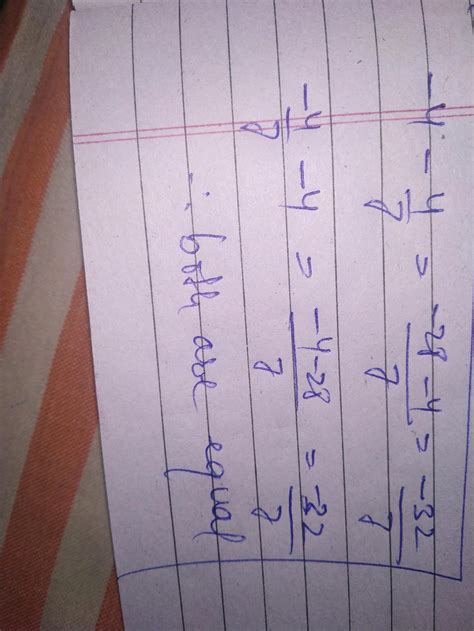 -4 - 4/7 = -28-4/7 = -32/7
-4/7 - 4 = -4-28/7 = -32/7
∴ both are equal